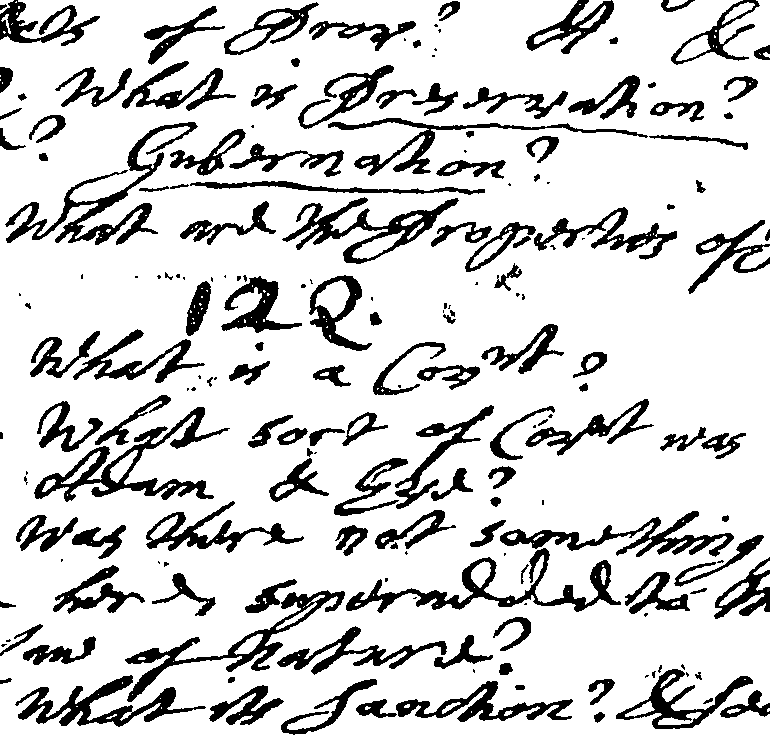 of Prov.? &. &
What is Preservation?
? Gubernation?
What are the Properties of
12 Q.
What is a Covnt?
What sort of Covnt was
Adam & Eve?
Was there not something
here superadded to the
Law of Nature?
What its Sanction? &